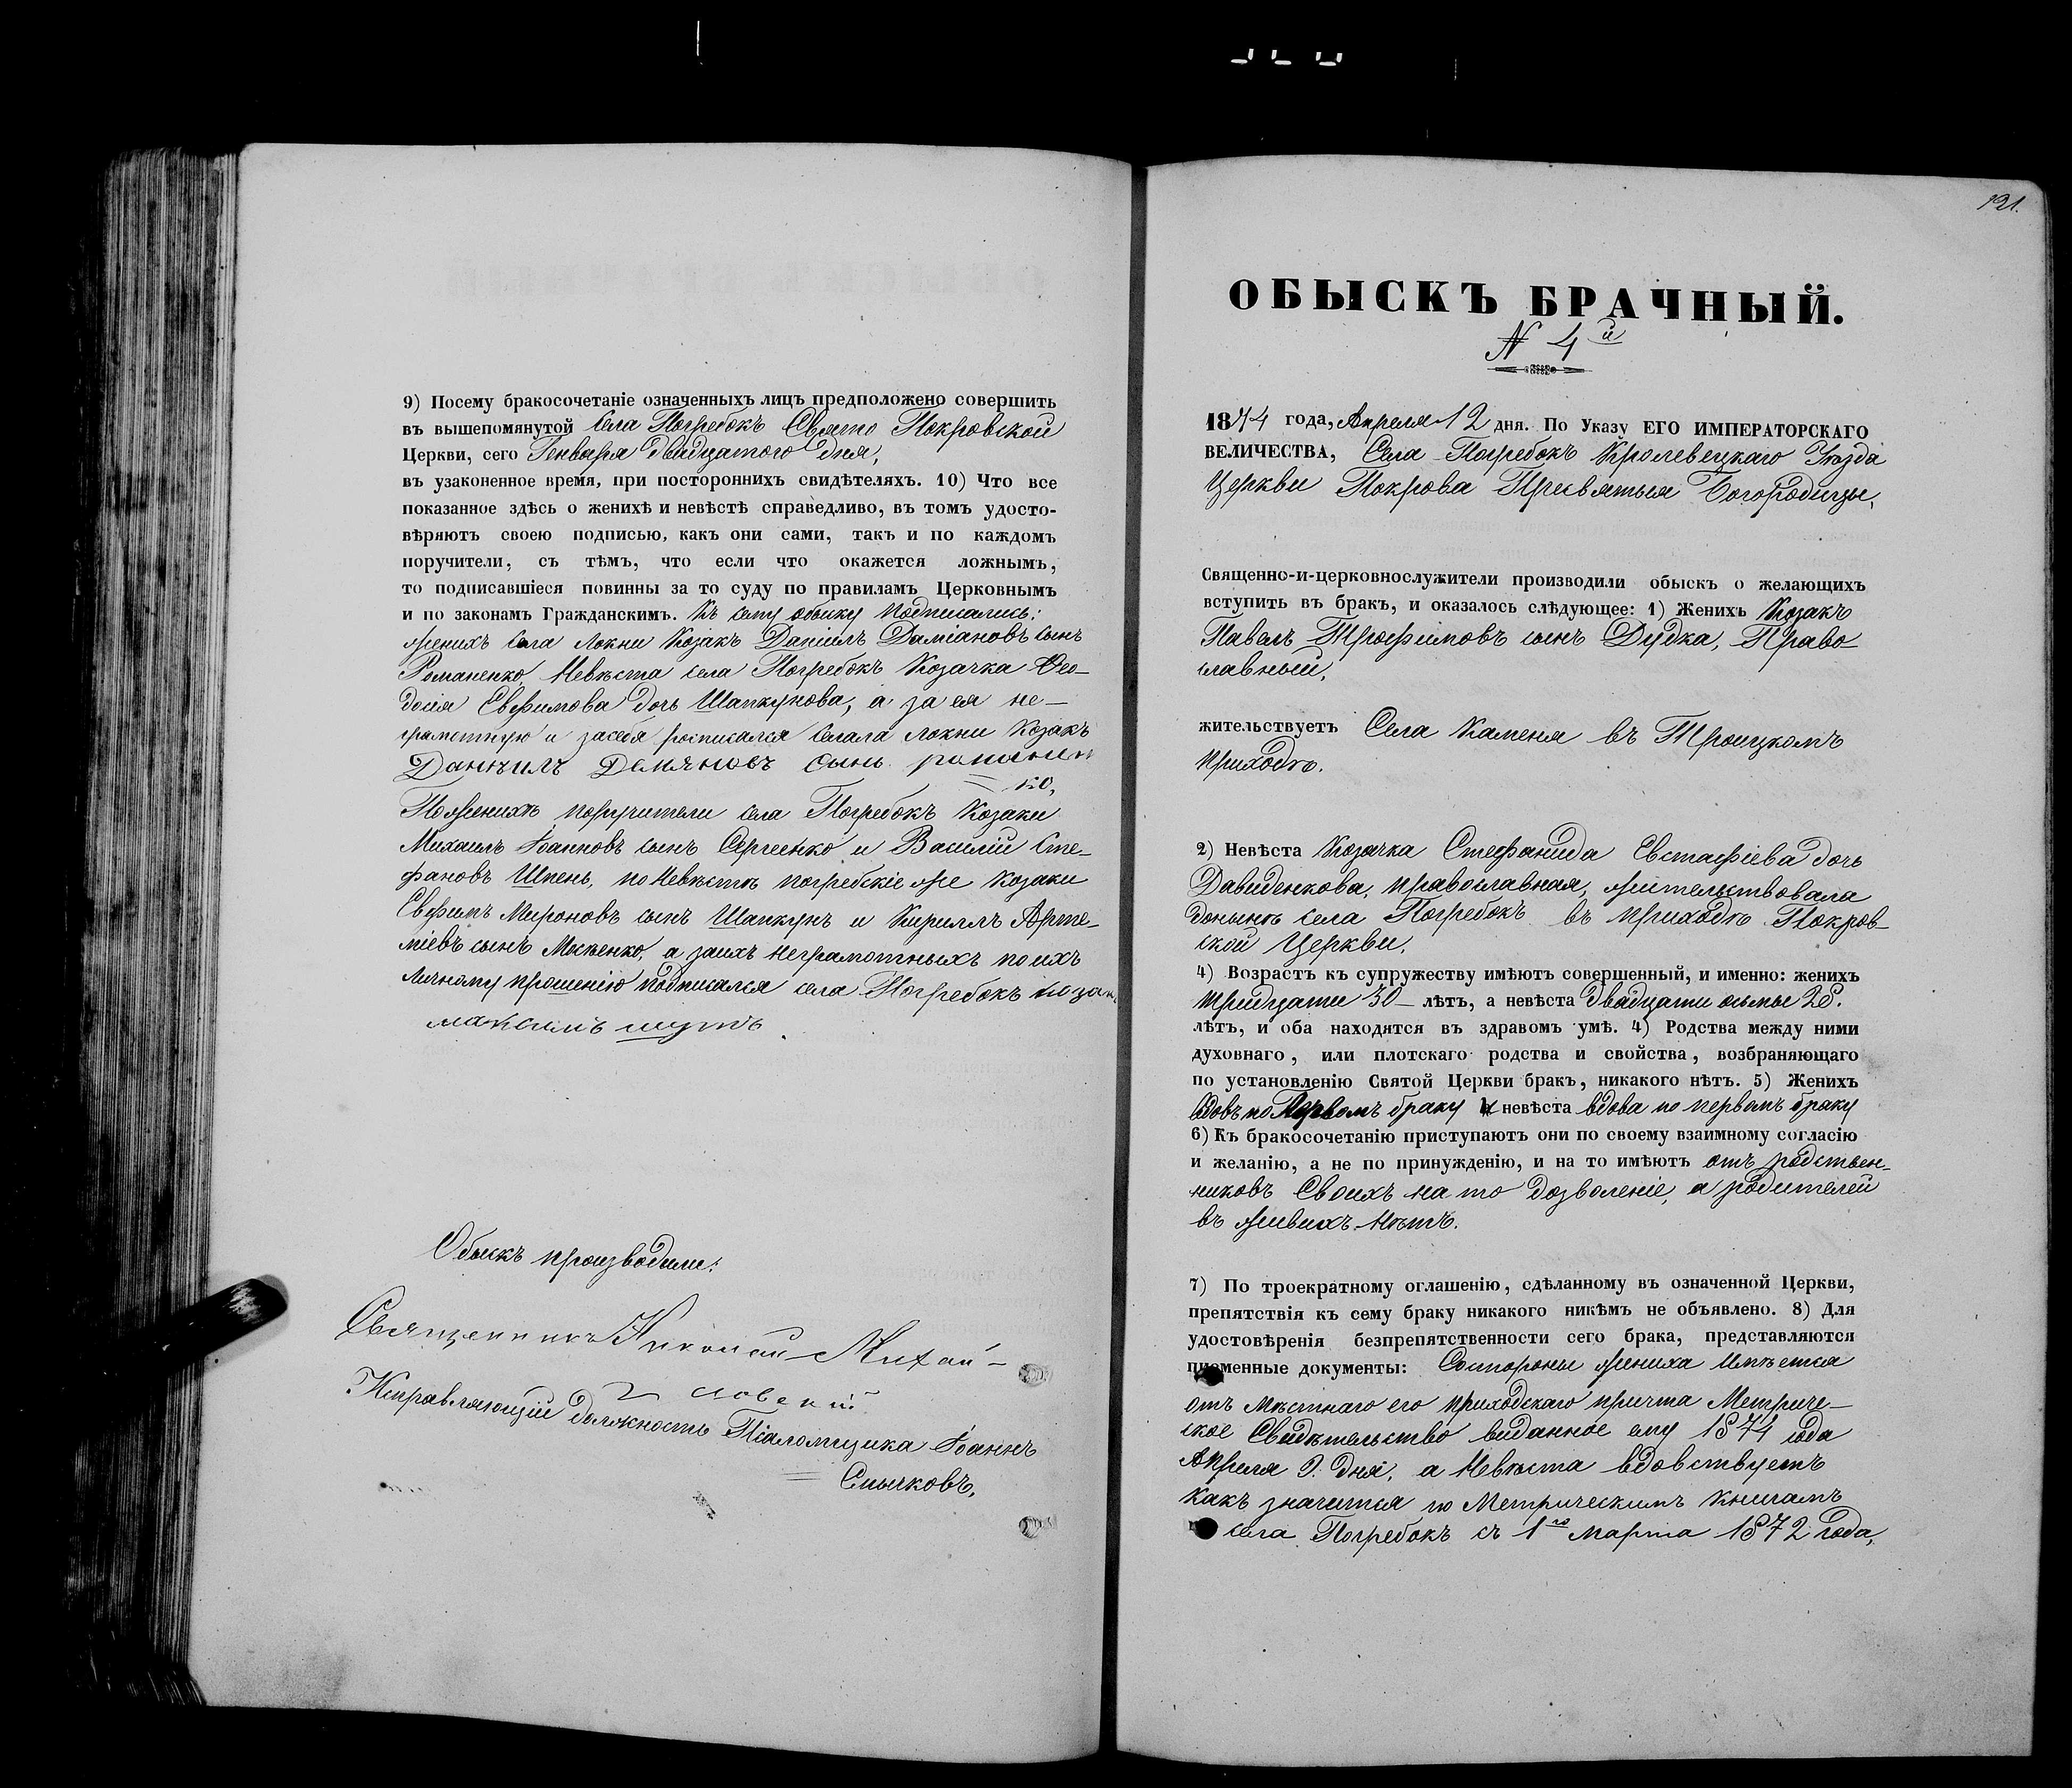 9) Посему бракосочетаніе означенныхъ лицъ предположено совершить
въ вышепомянутой села Погребокъ Свято Покровской
Церкви, сего Генваря двадцатого дня,
въ узаконенное время, при постороннихъ свидѣтеляхъ. 10) Что все
показанное здѣсь о женихѣ и невѣстѣ справедливо, въ томъ удосто-
вѣряютъ своею подписью, какъ они сами, такъ и по каждомъ
поручители, съ тѣмъ, что если что окажется ложнымъ,
то подписавшіеся повинны за то суду по правиламъ Церковнымъ
и по законамъ Гражданскимъ. Къ сему обыску подписались:
Женихъ села Локни Козакъ Даніилъ Даміановъ сынъ
Романенко, Невѣста села Погребокъ Козачка Ѳео-
досія Евфимова дочь Шапкунова, а за ея не-
грамотную и засебя росписался Локни Козакъ
Данѣилъ Демяновъ сынъ романен
ко,
Поженихѣ поручители села Погребокъ Козаки
Михаилъ Іоанновъ сынъ Сергіенко и Василій Сте-
фановъ Шпень, по Невѣстѣ погребскіе же Козаки
Евфимъ Мироновъ сынъ Шапкунъ и Кириллъ Арте-
міевъ сынъ Мосѣенко, а заихъ неграмотныхъ по ихъ
личному прошенію подписался села Погребокъ козак
максимъ шутъ.
Обыскъ производили:
Священникъ Николай Михай-
ловскій
Исправляющій должность Псаломщика Іоаннъ
Смычковъ,
121.
ОБЫСКЪ БРАЧНЫЙ.
N 4й
1874 года, Апреля 12 дня. По Указу ЕГО ИМПЕРАТОРСКАГО
ВЕЛИЧЕСТВА, Села Погребокъ Кролевецкаго Уѣзда
Церкви Покрова Пресвятыя Богородицы,
Священно-и-церковнослужители производили обыскъ о желающихъ
вступить въ бракъ, и оказалось слѣдующее: 1) Женихъ Козакъ
Павелъ Трофимовъ сынъ Дудка, Право-
славный,
жительствуетъ Села Каменя въ Троицкомъ
приходѣ.
2) Невѣста Козачка Стефанида Евстафіева дочь
Давиденкова, православная, жительствовала
донынѣ села Погребокъ въ приходѣ Покров-
ской Церкви,
4) Возрастъ къ супружеству имѣютъ совершенный, и именно: женихъ
тридцати 30- лѣтъ, а невѣста двадцати осьмы 28.
лѣтъ, и оба находятся въ здравомъ умѣ. 4) Родства между ними
духовнаго, или плотскаго родства и свойства, возбраняющаго
по установленію Святой Церкви бракъ, никакого нѣтъ. 5) Женихъ
вдовъ по Первомъ браку и невѣста вдова по первомъ браку
6) Къ бракосочетанію приступаютъ они по своему взаимному согласію
и желанію, а не по принужденію, и на то имѣютъ отъ родствен-
никовъ Своихъ на то дозволеніе, а родителей
въ живихъ нѣтъ.
7) По троекратному оглашенію, сдѣланному въ означенной Церкви,
препятствія къ сему браку никакого никѣмъ не объявлено. 8) Для
удостовѣренія безпрепятственности сего брака, представляются
письменные документы: Состороны жениха Имѣется
отъ мѣстнаго его приходскаго причта Метриче-
ское Свидѣтельство виданное ему 1874 года
Апреля 9. дня, а Невѣста вдовствуетъ
какъ значится по Метрическимъ книгамъ
села Погребокъ съ 1го марта 1872 года,